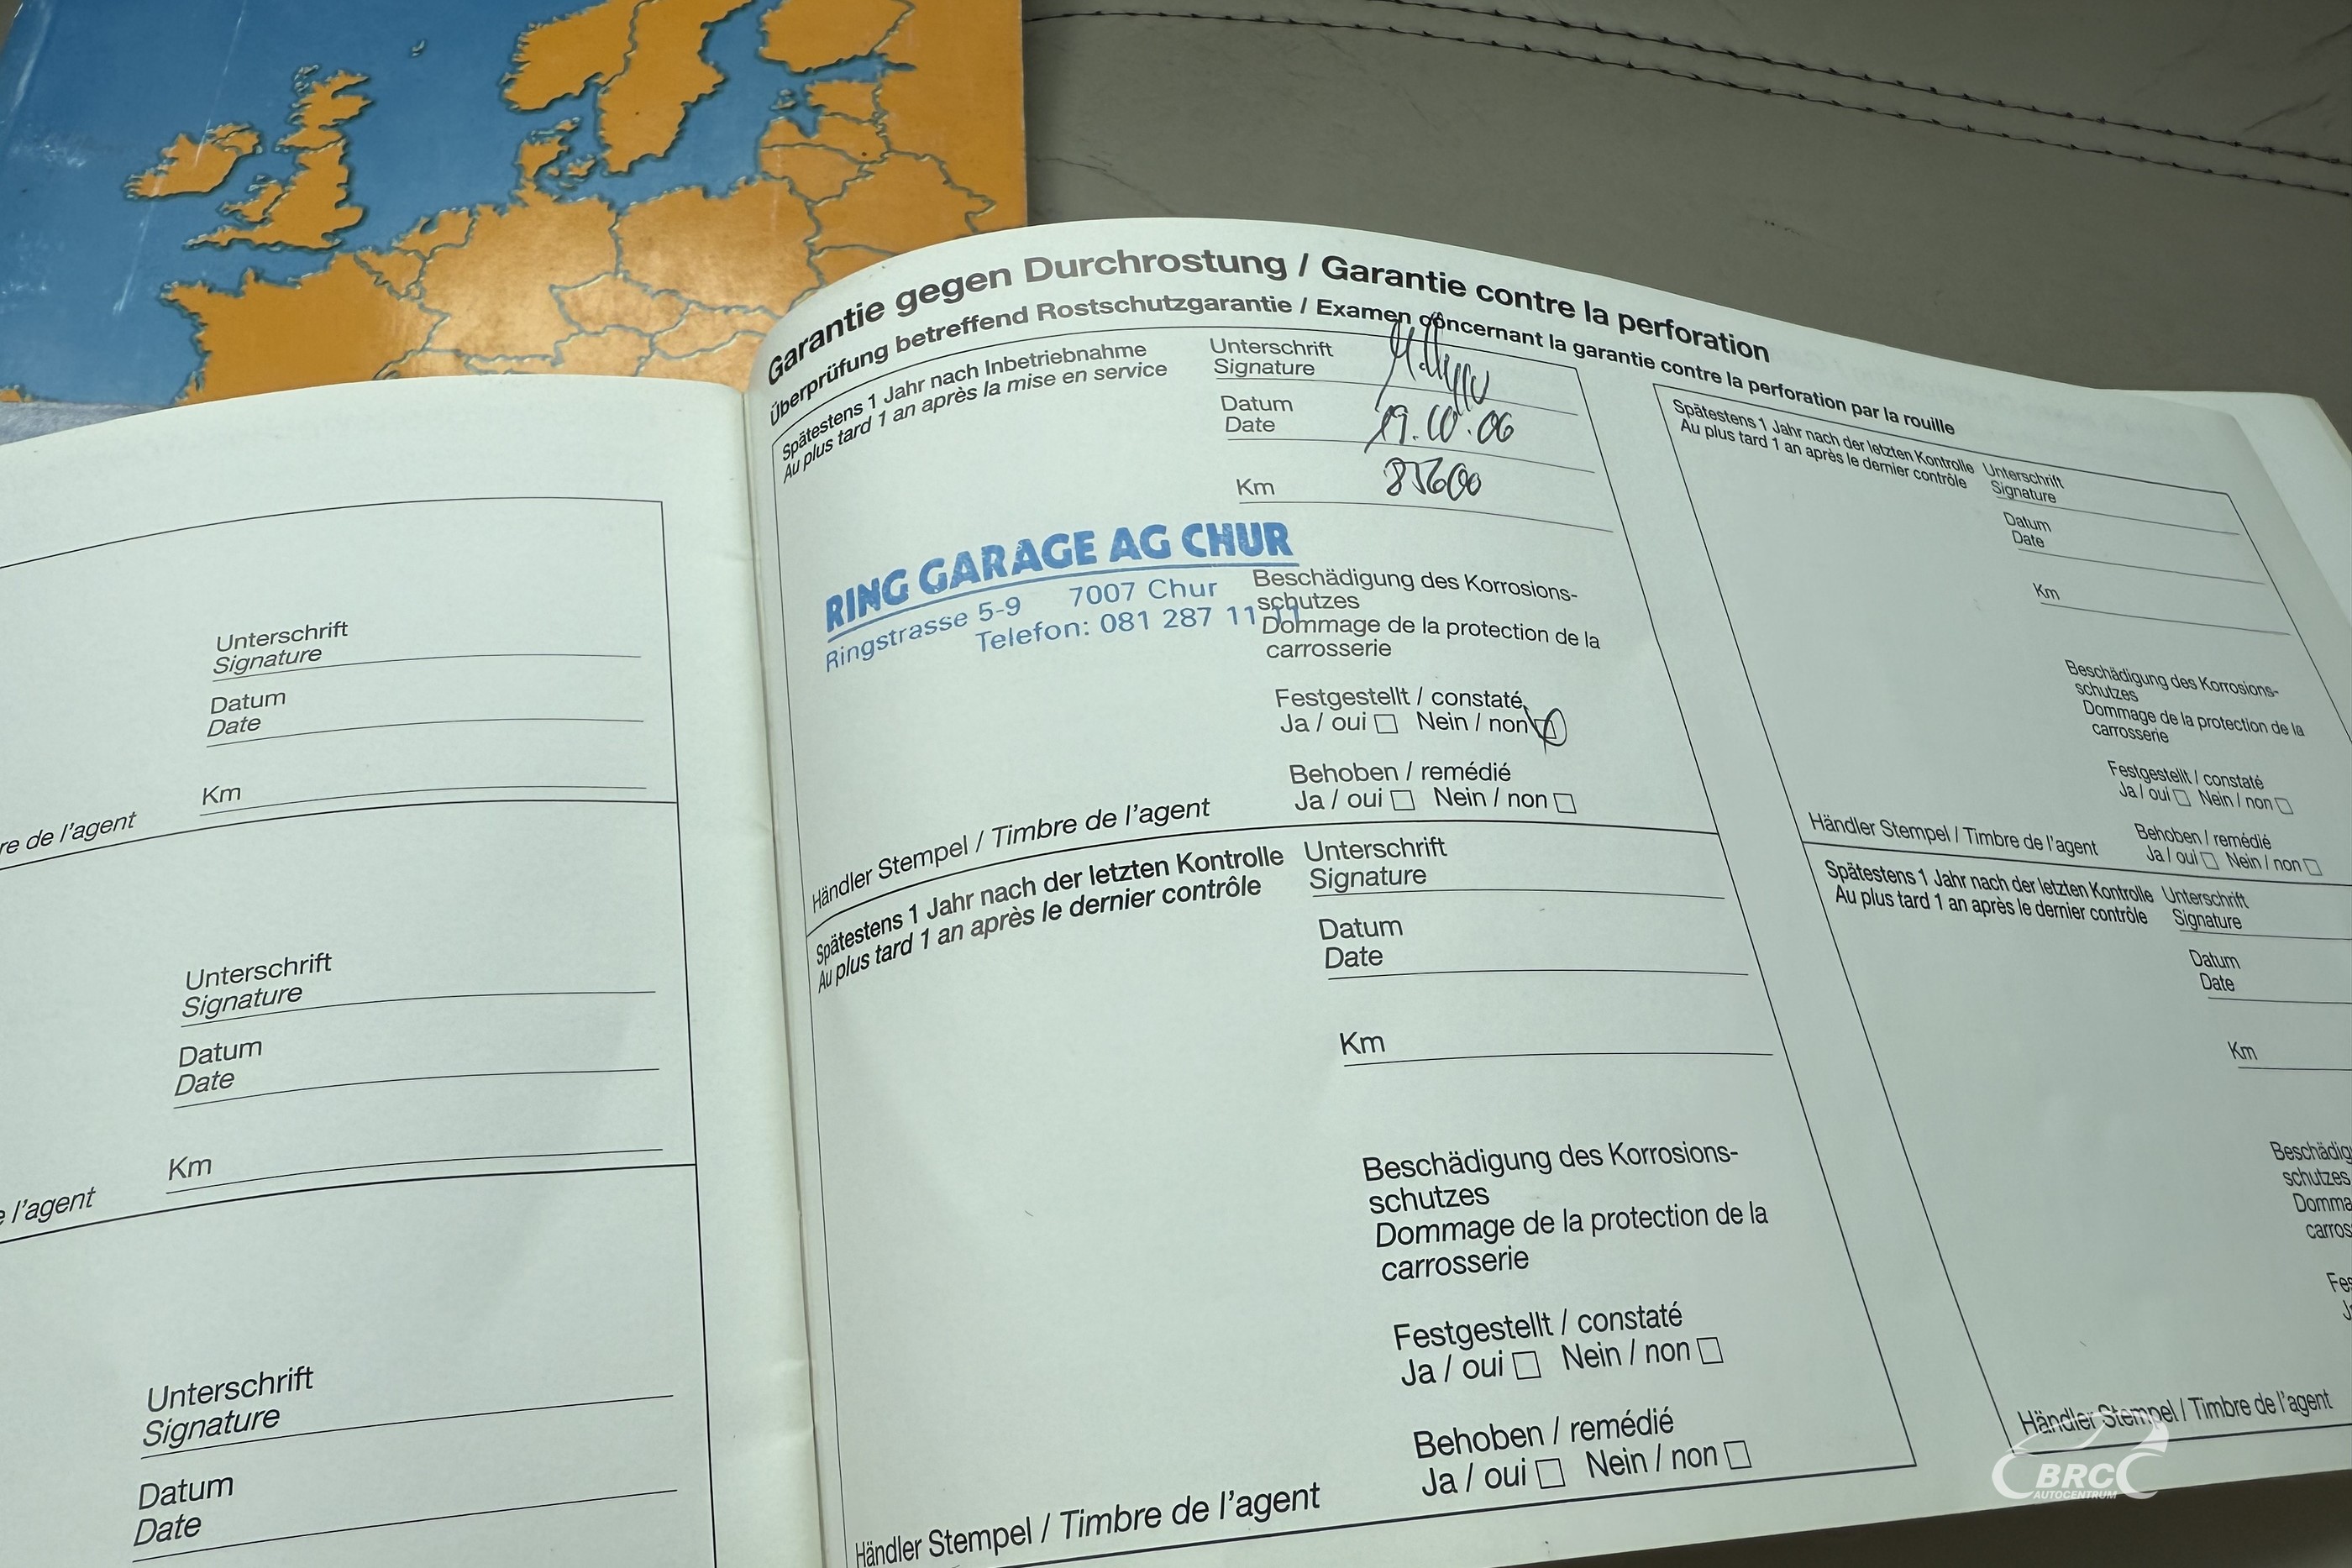 Garantie gegen Durchrostung / Garantie contre la perforation
Überprüfung betreffend Rostschutzgarantie / Examen concernant la garantie contre la perforation par la rouille
Spätestens 1 Jahr nach Inbetriebnahme
Au plus tard 1 an après la mise en service
Unterschrift
Signature
Datum
Date
19.10.06
Km
85600
RING GARAGE AG CHUR
Ringstrasse 5-9 7007 Chur
Telefon: 081 287 11 11
Beschädigung des Korrosions-
schutzes
Dommage de la protection de la
carrosserie
Festgestellt / constaté
Ja / oui Nein / non
Behoben / remédié
Ja / oui Nein / non
Händler Stempel / Timbre de l'agent
Spätestens 1 Jahr nach der letzten Kontrolle
Au plus tard 1 an après le dernier contrôle
Unterschrift
Signature
Datum
Date
Km
Beschädigung des Korrosions-
schutzes
Dommage de la protection de la
carrosserie
Festgestellt / constaté
Ja / oui Nein / non
Behoben / remédié
Ja / oui Nein / non
Händler Stempel / Timbre de l'agent
Spätestens 1 Jahr nach der letzten Kontrolle
Au plus tard 1 an après le dernier contrôle
Unterschrift
Signature
Datum
Date
Km
Beschädigung des Korrosions-
schutzes
Dommage de la protection de la
carrosserie
Festgestellt / constaté
Ja / oui Nein / non
Behoben / remédié
Ja / oui Nein / non
Händler Stempel / Timbre de l'agent
Spätestens 1 Jahr nach der letzten Kontrolle
Au plus tard 1 an après le dernier contrôle
Unterschrift
Signature
Datum
Date
Km
schutzes
Händler Stempel / Timbre de l'agent
Unterschrift
Signature
Datum
Date
Km
de l'agent
Unterschrift
Signature
Datum
Date
Km
l'agent
Unterschrift
Signature
Datum
Date
BRC
AUTOCENTRUM